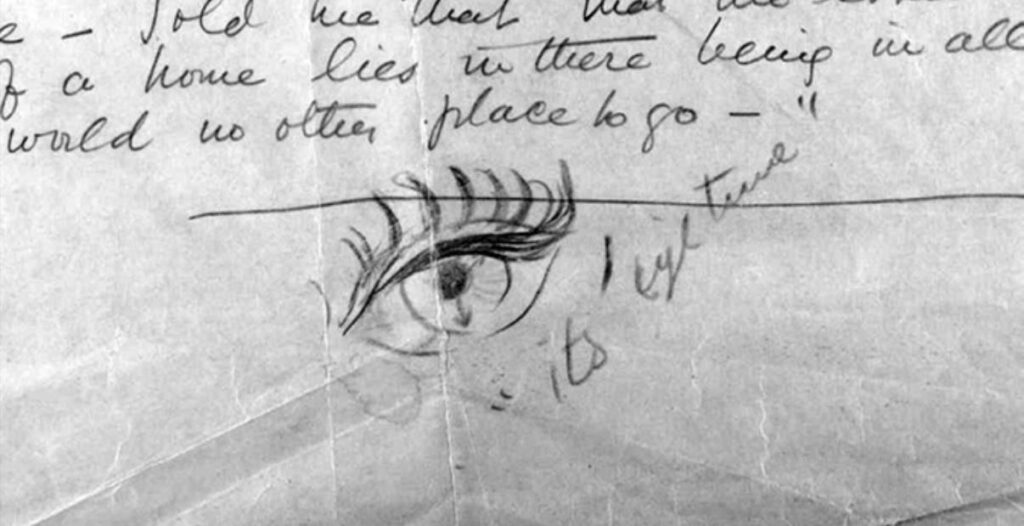 e – told me that that the
of a home lies in there being in all
world no other place to go – "
time
its